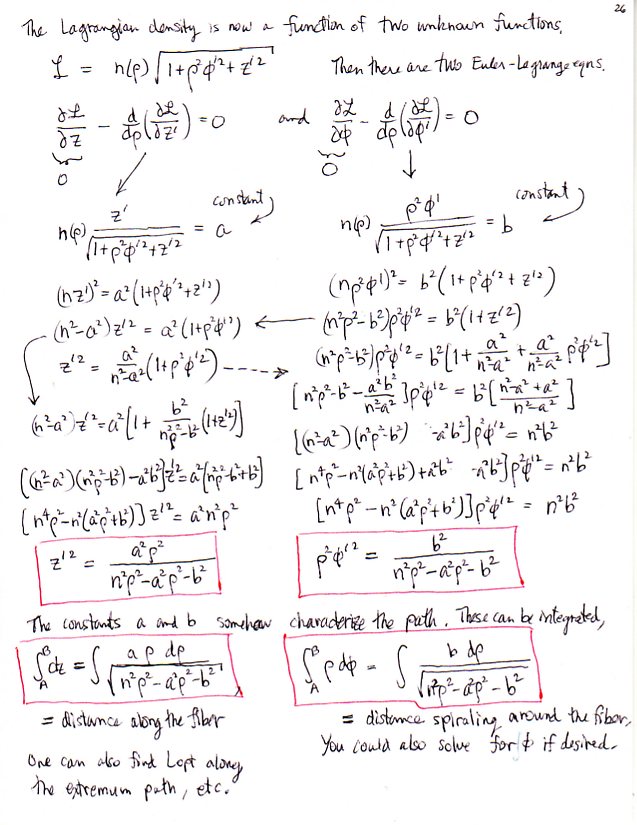 26
The Lagrangian density is now a function of two unknown functions.
ℒ = n(ρ) √(1+ρ²ϕ'²+z'²)    Then there are two Euler-Lagrange eqns.
∂ℒ/∂z - d/dρ(∂ℒ/∂z') = 0    and    ∂ℒ/∂ϕ - d/dρ(∂ℒ/∂ϕ') = 0
0    0
constant    constant
n(ρ) z'/√(1+ρ²ϕ'²+z'²) = a    n(ρ) ρ²ϕ'/√(1+ρ²ϕ'²+z'²) = b
(nz')² = a²(1+ρ²ϕ'²+z'²)    (nρ²ϕ')² = b²(1+ρ²ϕ'²+z'²)
(n²-a²)z'² = a²(1+ρ²ϕ'²)    (n²ρ²-b²)ρ²ϕ'² = b²(1+z'²)
z'² = a²/(n²-a²) (1+ρ²ϕ'²)    (n²ρ²-b²)ρ²ϕ'² = b²[1+ a²/(n²-a²) + a²/(n²-a²) ρ²ϕ'²]
[n²ρ²-b² - a²b²/(n²-a²)]ρ²ϕ'² = b²[(n²-a²+a²)/(n²-a²)]
(n²-a²)z'² = a²[1 + b²/(n²ρ²-b²) (1+z'²)]    [(n²-a²)(n²ρ²-b²) -a²b²]ρ²ϕ'² = n²b²
[(n²-a²)(n²ρ²-b²)-a²b²]z'² = a²[n²ρ²-b²+b²]    [n⁴ρ²-n²(a²ρ²+b²)+a²b² -a²b²]ρ²ϕ'² = n²b²
[n⁴ρ²-n²(a²ρ²+b²)]z'² = a²n²ρ²    [n⁴ρ²-n²(a²ρ²+b²)]ρ²ϕ'² = n²b²
z'² = a²ρ²/(n²ρ²-a²ρ²-b²)    ρ²ϕ'² = b²/(n²ρ²-a²ρ²-b²)
The constants a and b somehow characterize the path. These can be integrated,
∫_A^B dz = ∫ a ρ dρ/√(n²ρ²-a²ρ²-b²)    ∫_A^B ρ dϕ = ∫ b dρ/√(n²ρ²-a²ρ²-b²)
= distance along the fiber    = distance spiraling around the fiber,
You could also solve for ϕ if desired.
One can also find Lopt along
the extremum path, etc.